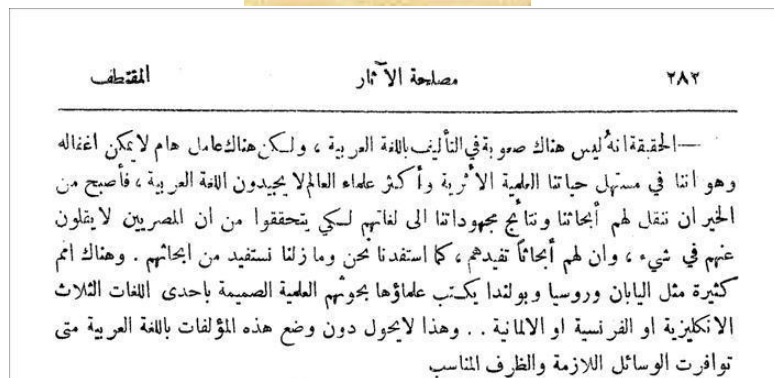 ٢٨٢ مصلحة الآثار المقتطف
—الحقيقة انهُ ليس هناك صعوبة في التأليف باللغة العربية ، ولكن هناك عامل هام لا يمكن اغفاله
وهو اننا في مستهل حياتنا العلمية الأثرية وأكثر علماء العالم لا يجيدون اللغة العربية ، فأصبح من
الخير ان ننقل لهم أبحاثنا ونتائج مجهوداتنا الى لغاتهم لكي يتحققوا من ان المصريين لا يقلون
عنهم في شيء ، وان لهم أبحاثاً تفيدهم ، كما استفدنا نحن وما زلنا نستفيد من ابحاثهم . وهناك امم
كثيرة مثل اليابان وروسيا وبولندا يكتب علماؤها بحوثهم العلمية الصميمة باحدى اللغات الثلاث
الانكليزية او الفرنسية او الالمانية . . وهذا لا يحول دون وضع هذه المؤلفات باللغة العربية متى
توافرت الوسائل اللازمة والظرف المناسب